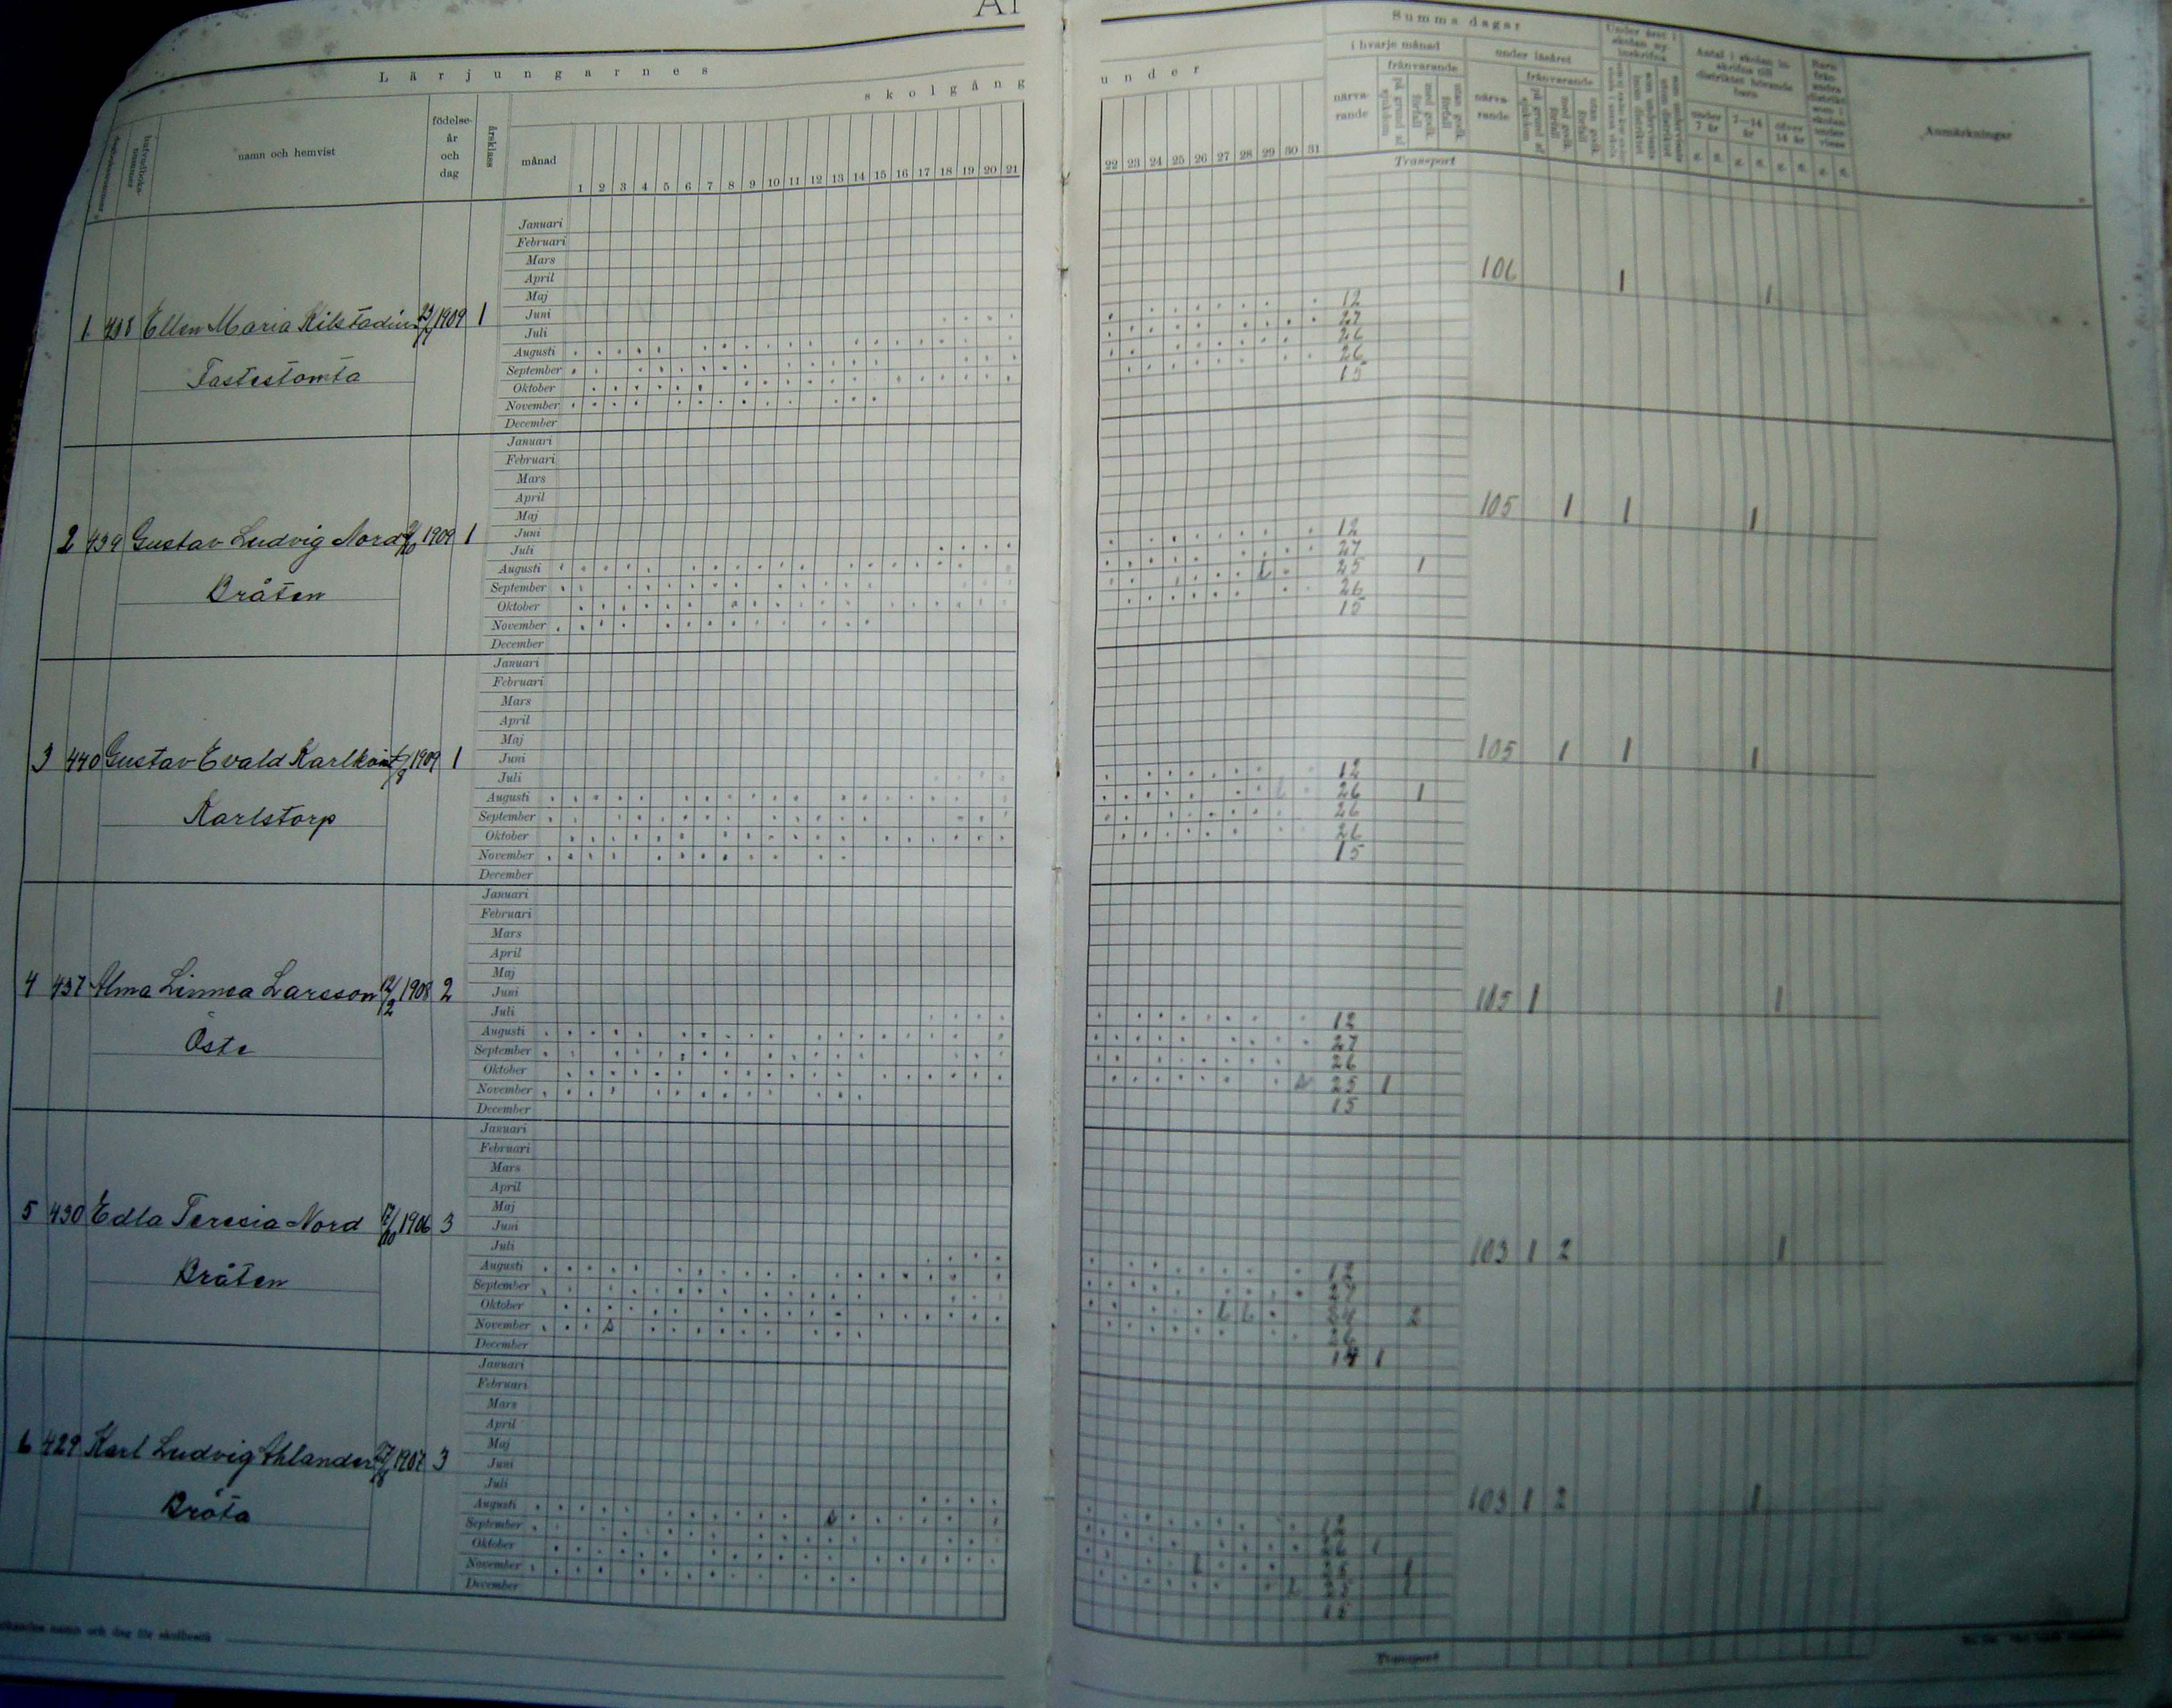 Lärjungarnes skolgång
namn och hemvist
födelse-
år
och
dag
årsklass
månad
1 2 3 4 5 6 7 8 9 10 11 12 13 14 15 16 17 18 19 20 21
under
22 23 24 25 26 27 28 29 30 31
Summa dagar
i hvarje månad
under läsåret
frånvarande
frånvarande
närva-
rande
närva-
rande
på grund af
sjukdom
med godk.
förfall
utan godk.
förfall
Under året i
skolan ny-
inskrifna
Antal i skolan in-
skrifna till
distriktet hörande
barn
under
7 år
7—14
år
öfver
14 år
Anmärkningar
Transport
1 438 Ellen Maria 1909 1
Tastestomta
Januari
Februari
Mars
April
Maj
Juni
Juli
Augusti
September
Oktober
November
December
12
27
26
26
15
106 1 1
2 439 Gustav Ludvig Nord 1909 1
Bråten
Januari
Februari
Mars
April
Maj
Juni
Juli
Augusti
September
Oktober
November
December
12
27
25 1
26
15
105 1 1 1
3 440 Gustav Evald 1909 1
Karlstorp
Januari
Februari
Mars
April
Maj
Juni
Juli
Augusti
September
Oktober
November
December
12
26 1
26
26
15
105 1 1 1
4 437 Alma Linnea Larsson 12/12 1908 2
Öste
Januari
Februari
Mars
April
Maj
Juni
Juli
Augusti
September
Oktober
November
December
12
27
26
25 1
15
105 1 1
5 430 Edla Teresia Nord 17/10 1906 3
Bråten
Januari
Februari
Mars
April
Maj
Juni
Juli
Augusti
September
Oktober
November
December
12
27
24 2
26
14 1
103 1 2 1
6 429 Karl Ludvig Ahlander 1907 3
Bråta
Januari
Februari
Mars
April
Maj
Juni
Juli
Augusti
September
Oktober
November
December
12
26 1
25 1
25 1
15
103 1 2 1
namn och dag för skolbesök
Transport